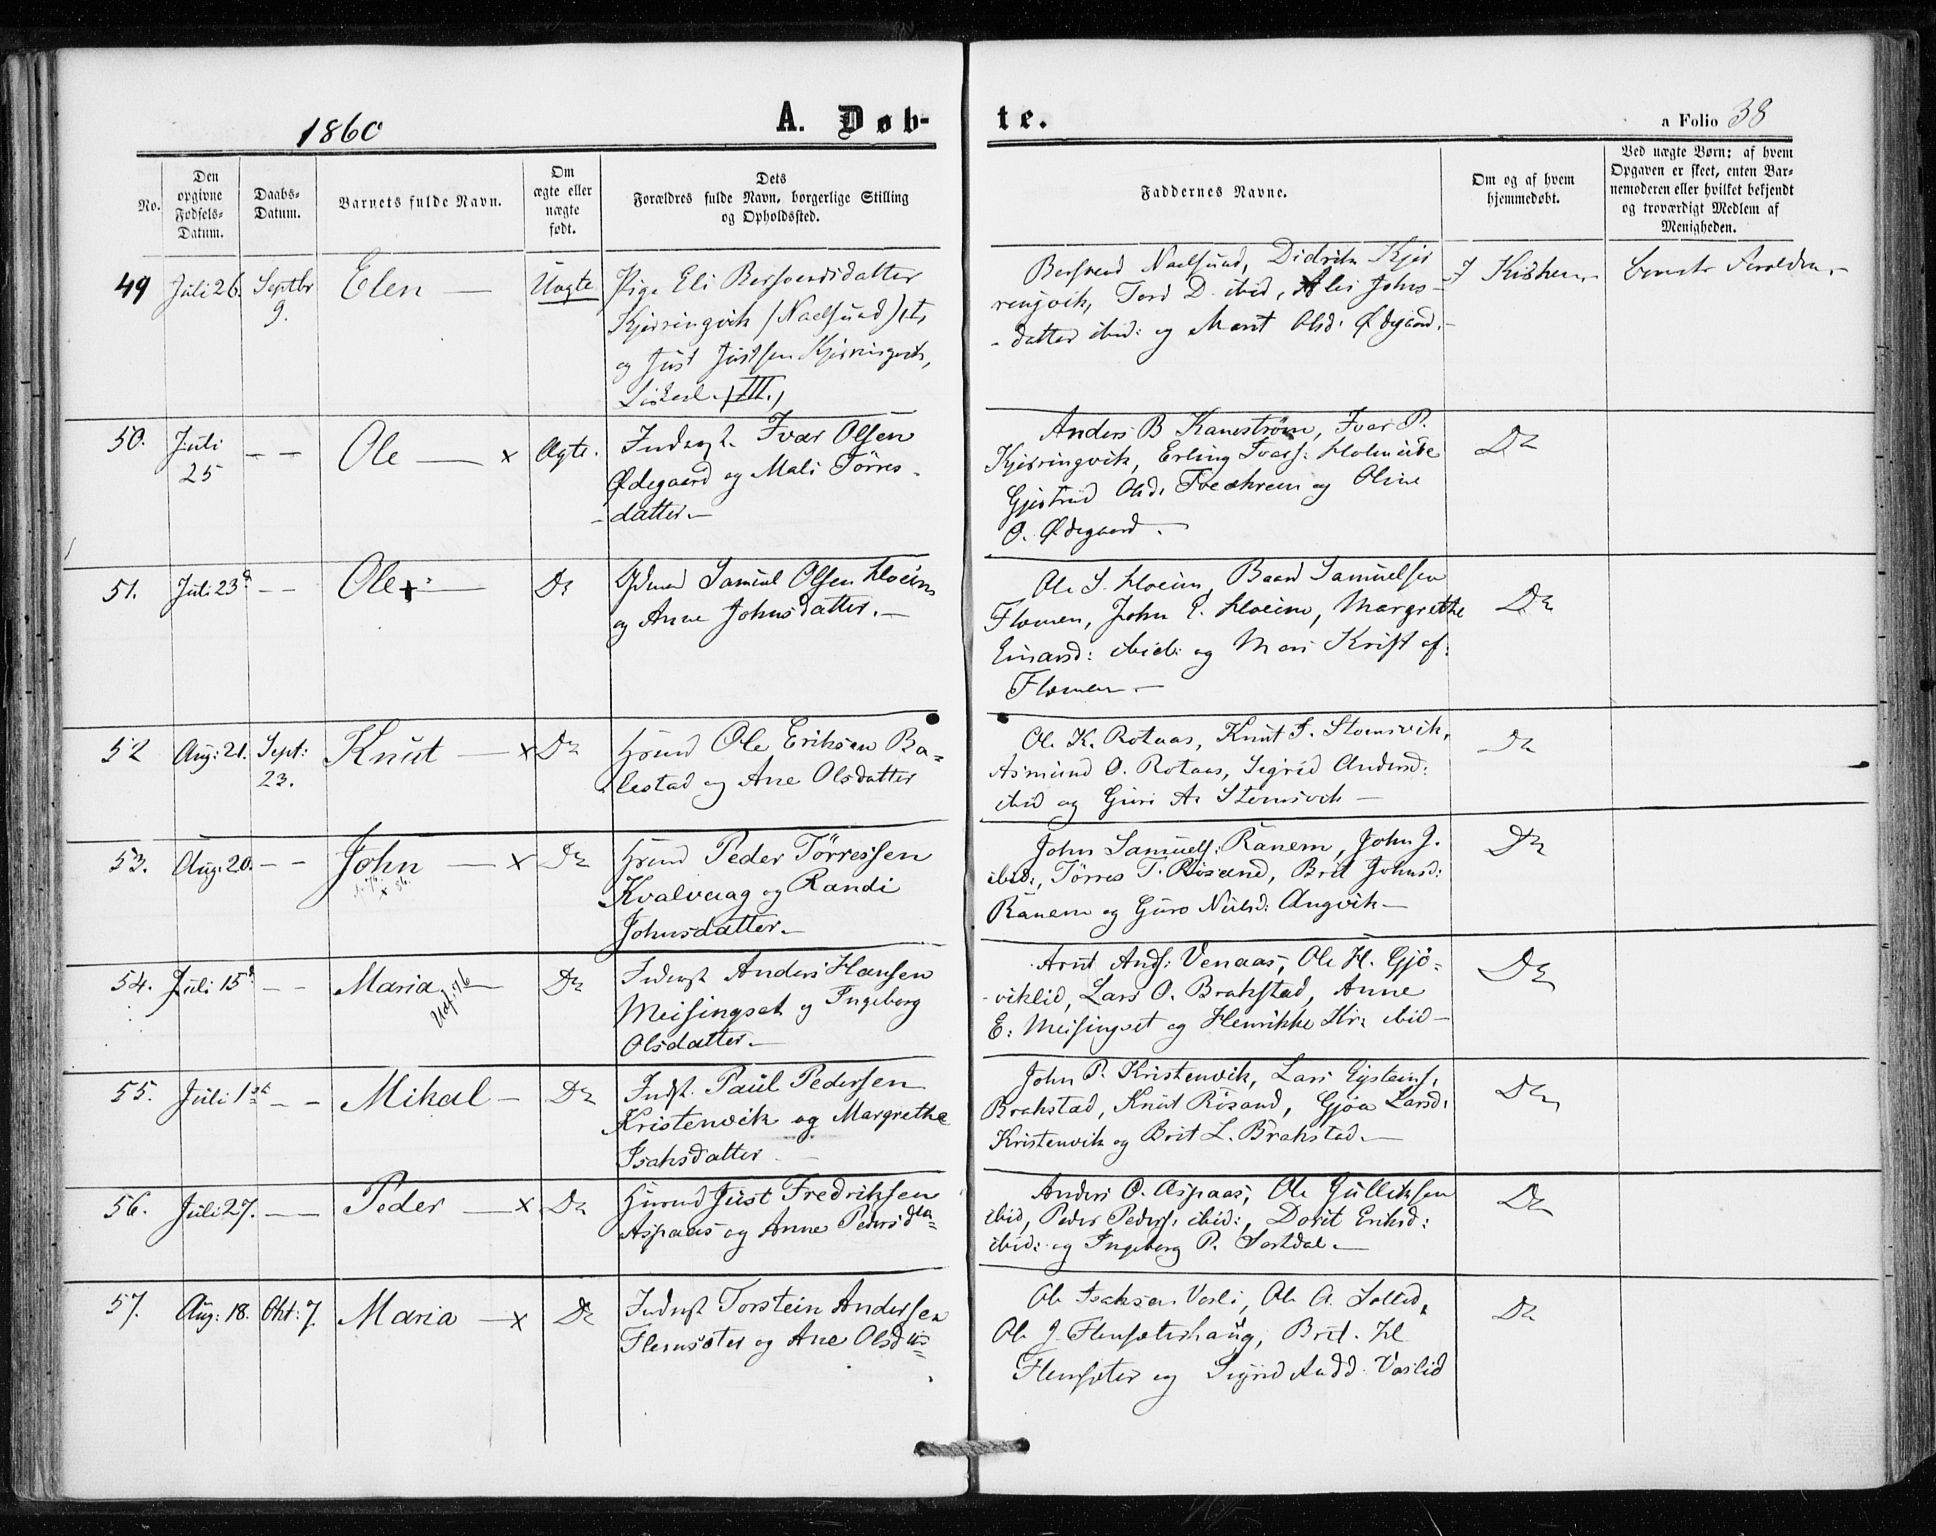 1860
A. Døb-
te.
a Folio 38
No.
Den
opgivne
Fødsels-
Datum.
Daabs-
Datum.
Barnets fulde Navn.
Om
ægte eller
uægte
født.
Dets
Forældres fulde Navn, borgerlige Stilling
og Opholdssted.
Faddernes Navne.
Om og af hvem
hjemmedøbt.
Ved uægte Børn: af hvem
Opgaven er skeet, enten Bar-
nemoderen eller hvilket bekjendt
og troværdigt Medlem af
Menigheden.
49
Juli 26.
Septbr
9.
Elen —
Uægte
Pige Eli Bersvendsdatter
Kjørringvik (Naelsund) 1t,
og Just Justsen Kjørringvik,
(III.)
Bersvend Naelsund, Didrik Kjør
ringvik, Tord D. ibid, Ales Johns-
datter ibid: og Marit Olsd: Ødegaard.—
I Kirken.—
50.
Juli
25
— —
Ole — x
Ægte.
Inderst. Ivar Olsen
Ødegaard og Mali Törres-
-datter.—
Anders B Kanestrøm, Ivar P.
Kjørringvik, Erling Ivars:
Gjertrud Olsd: og Oline
O. Ødegaard.—
Do
51.
Juli 23d
— —
Ole +: —
Do
Gdmd Samuel Olsen Hoeim
og Anne Johnsdatter.—
Ole S. Hoeim, Baard Samuelsen
Flemmen, John E. Hoeim, Margrethe
Einarsd: ibid: og Mari Krist af:
Flemmen.—
Do
52
Aug: 21.
Sept:
23.
Knut — x
Do
Husmd Ole Eriksen Ba=
lestad og Ane Olsdatter
Ole K. Rotaas, Knut S. Stomsvik,
Asmund O. Rotaas, Sigrid Andersd:
ibid og Guri A. Stomsvik —
Do
53.
Aug. 20.
— —
John — x
Do
Husmd Peder Törressen
Kvalvaag og Randi
Johnsdatter.—
John Samuels: Ranem, John J.
ibid:, Törres T. Risand, Brit Johnsd:
Ranem og Guro Nielsd: Angvik—
Do
54.
Juli 15d
— —
Maria —
Udf: 76
Do
Inderst Anders Hansen
Meisingset og Ingeborg
Olsdatter.—
Arnt Ands: Venaas, Ole H. Gjö=
viklid, Lars O. Brakstad, Anne
E: Meisingset og Henrikke Hr: ibid—
Do
55.
Juli 1ste
— —
Mikal —
Do
Indst. Paul Pedersen
Kristenvik og Margrethe
Isaksdatter
John P. Kristenvik, Lars Eysteins,
Brakstad, Knut Risand, Gjøa Larsd:
Kristenvik og Brit L. Brakstad.—
Do
56.
Juli 27.
— —
Peder — x
Do
Husmd Just Fredriksen
Aspaas og Anne Pedersdtr
Anders O. Aspaas, Ole Gulliksen
ibid, Peder Peders: ibid:, Dorit Eriksd:
ibid: og Ingeborg P. —
Do
57.
Aug: 18.
Okt: 7.
Maria — x
Do
Inderst Torstein Andersen
Flemsæter og Ane Olsdtr
Ole Isaksen Vasli, Ole A. Sollid,
Ole J. Flemsæterhaug, Brit.
Flemsæter og Sigrid Andd: Vaslid
Do